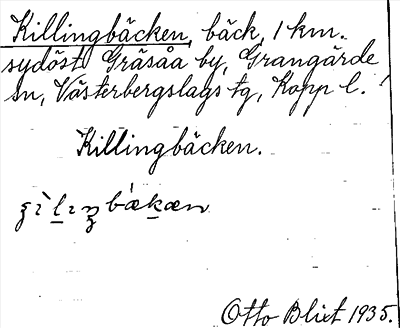 Killingbäcken, bäck, 1 km.
sydöst Gräsåa by, Grangärde
sn, Västerbergslags tg, Kopp l.
Killingbäcken.
Otto Blixt 1935.